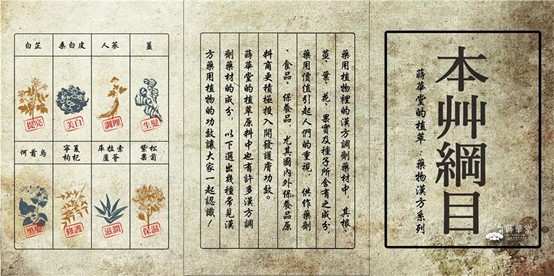 本艸綱目
蔣華堂的植萃．藥物漢方系列
藥用植物裡的漢方調劑藥材中，其根、
莖、葉、花、果實及種子所含有之成分，
藥用價值引起人們的重視，供作藥劑
、食品、保養品，尤其國內外保養品原
料商更積極投入開發護膚功效。
蔣華堂的植萃原料中也有許多漢方調
劑藥材的成分，以下選出幾種常見漢
方藥用植物的功效讓大家一起認識！
薑
生髮
人蔘
調理
桑白皮
美白
白芷
提亮
紫松
果菊
保濕
庫拉索
蘆薈
滋潤
寧夏
枸杞
修護
何首烏
黑髮